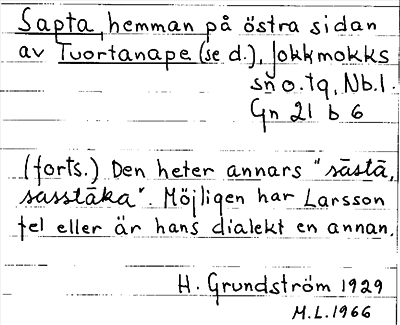 Sapta, hemman på östra sidan
av Tuortanape (se d.), Jokkmokks
sn o. tg, Nb. l.
Gn 21 b 6
(forts.) Den heter annars "sāstā,
sasstāka". Möjligen har Larsson
fel eller är hans dialekt en annan.
H. Grundström 1929
M.L. 1966